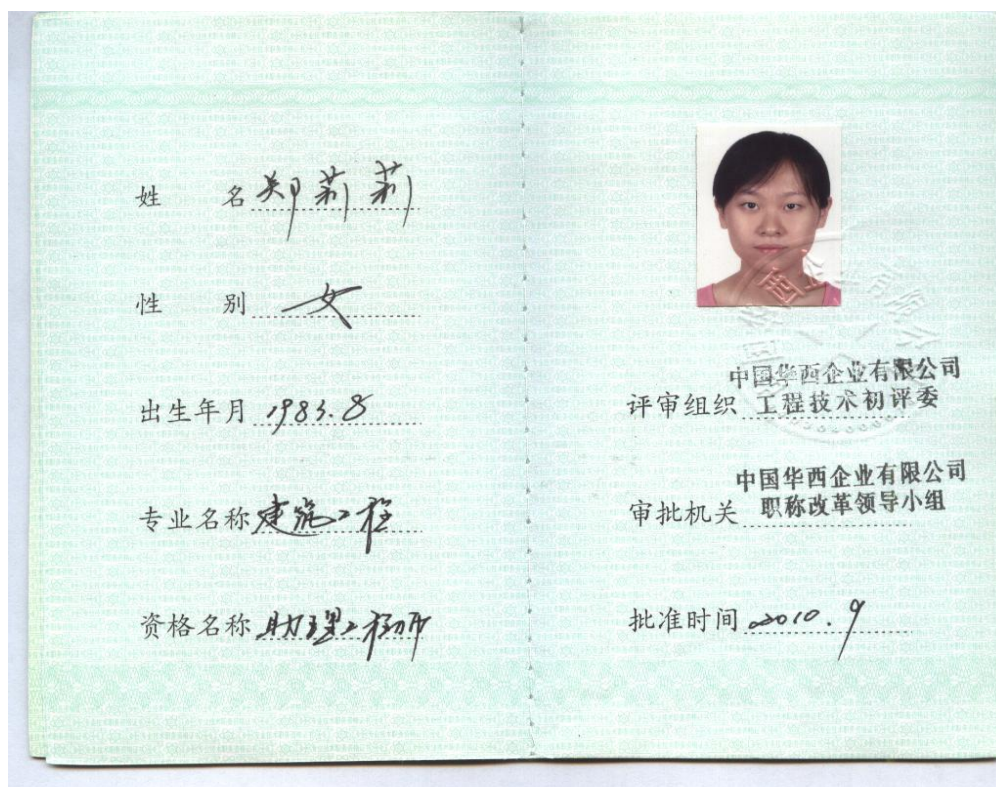 姓 名 郑莉莉
性 别 女
出生年月 1983.8
专业名称 建筑工程
资格名称 助理工程师
中国华西企业有限公司
评审组织 工程技术初评委
中国华西企业有限公司
审批机关 职称改革领导小组
批准时间 2010.9